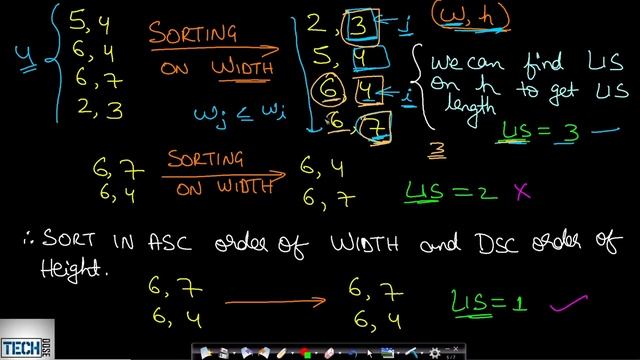 (w, h)
4
5, 4
6, 4
6, 7
2, 3
SORTING
ON WIDTH
wj ≤ wi
2, 3 ← j
5, 4
6, 4 ← i
6, 7
we can find LIS
on h to get LIS
length
LIS = 3
3
6, 7
6, 4
SORTING
ON WIDTH
6, 4
6, 7
LIS = 2 ×
∴ SORT IN ASC order of WIDTH and DSC order of
Height.
6, 7
6, 4
6, 7
6, 4
LIS = 1 ✓
TECH
DOSE